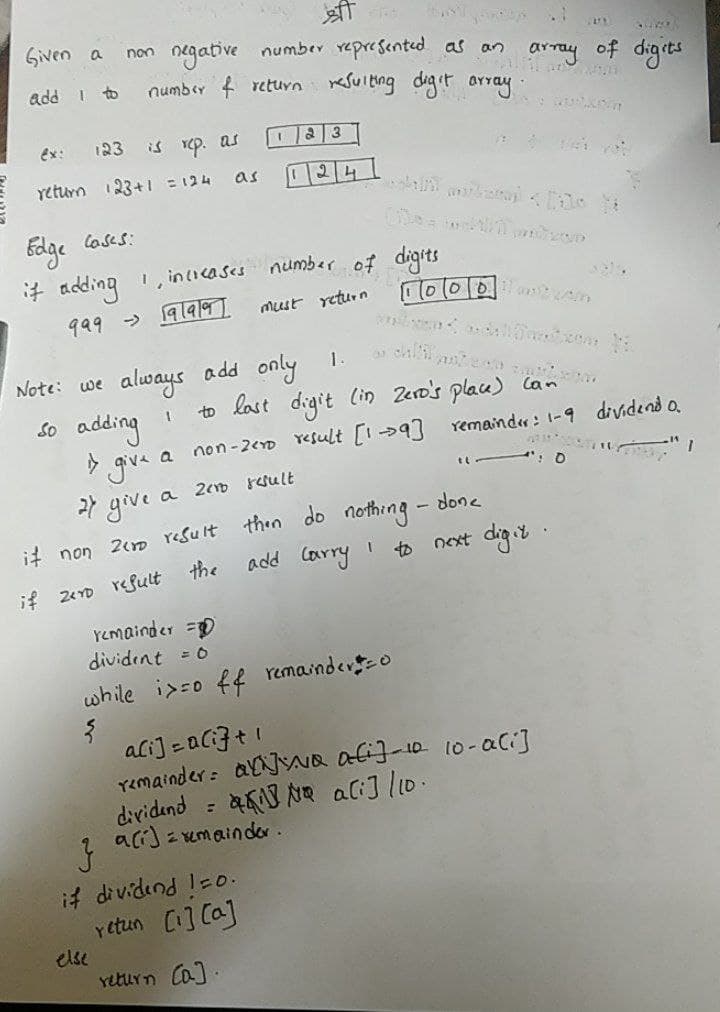 श्री
Given a non negative number represented as an array of digits
add 1 to number & return resulting digit array.
ex: 123 is rep. as 1 2 3
return 123+1 = 124 as 1 2 4
Edge Cases:
if adding 1, increases number of digits
999 → 9 9 9 must return 1 0 0 0
Note: we always add only 1.
so adding 1 to last digit (in Zero's place) can
1) give a non-zero result [1→9] remainder: 1-9 dividend 0.
2) give a zero result " —— " : 0 " —— " 1
if non zero result then do nothing - done
if zero result the add carry 1 to next digit.
remainder = 0
divident = 0
while i>=0 && remainder != 0
{
a[i] = a[i] + 1
remainder = a[i]-10 10-a[i]
dividend = a[i] /10.
a[i] = remainder.
}
if dividend != 0.
retun [1][a]
else
return [a].